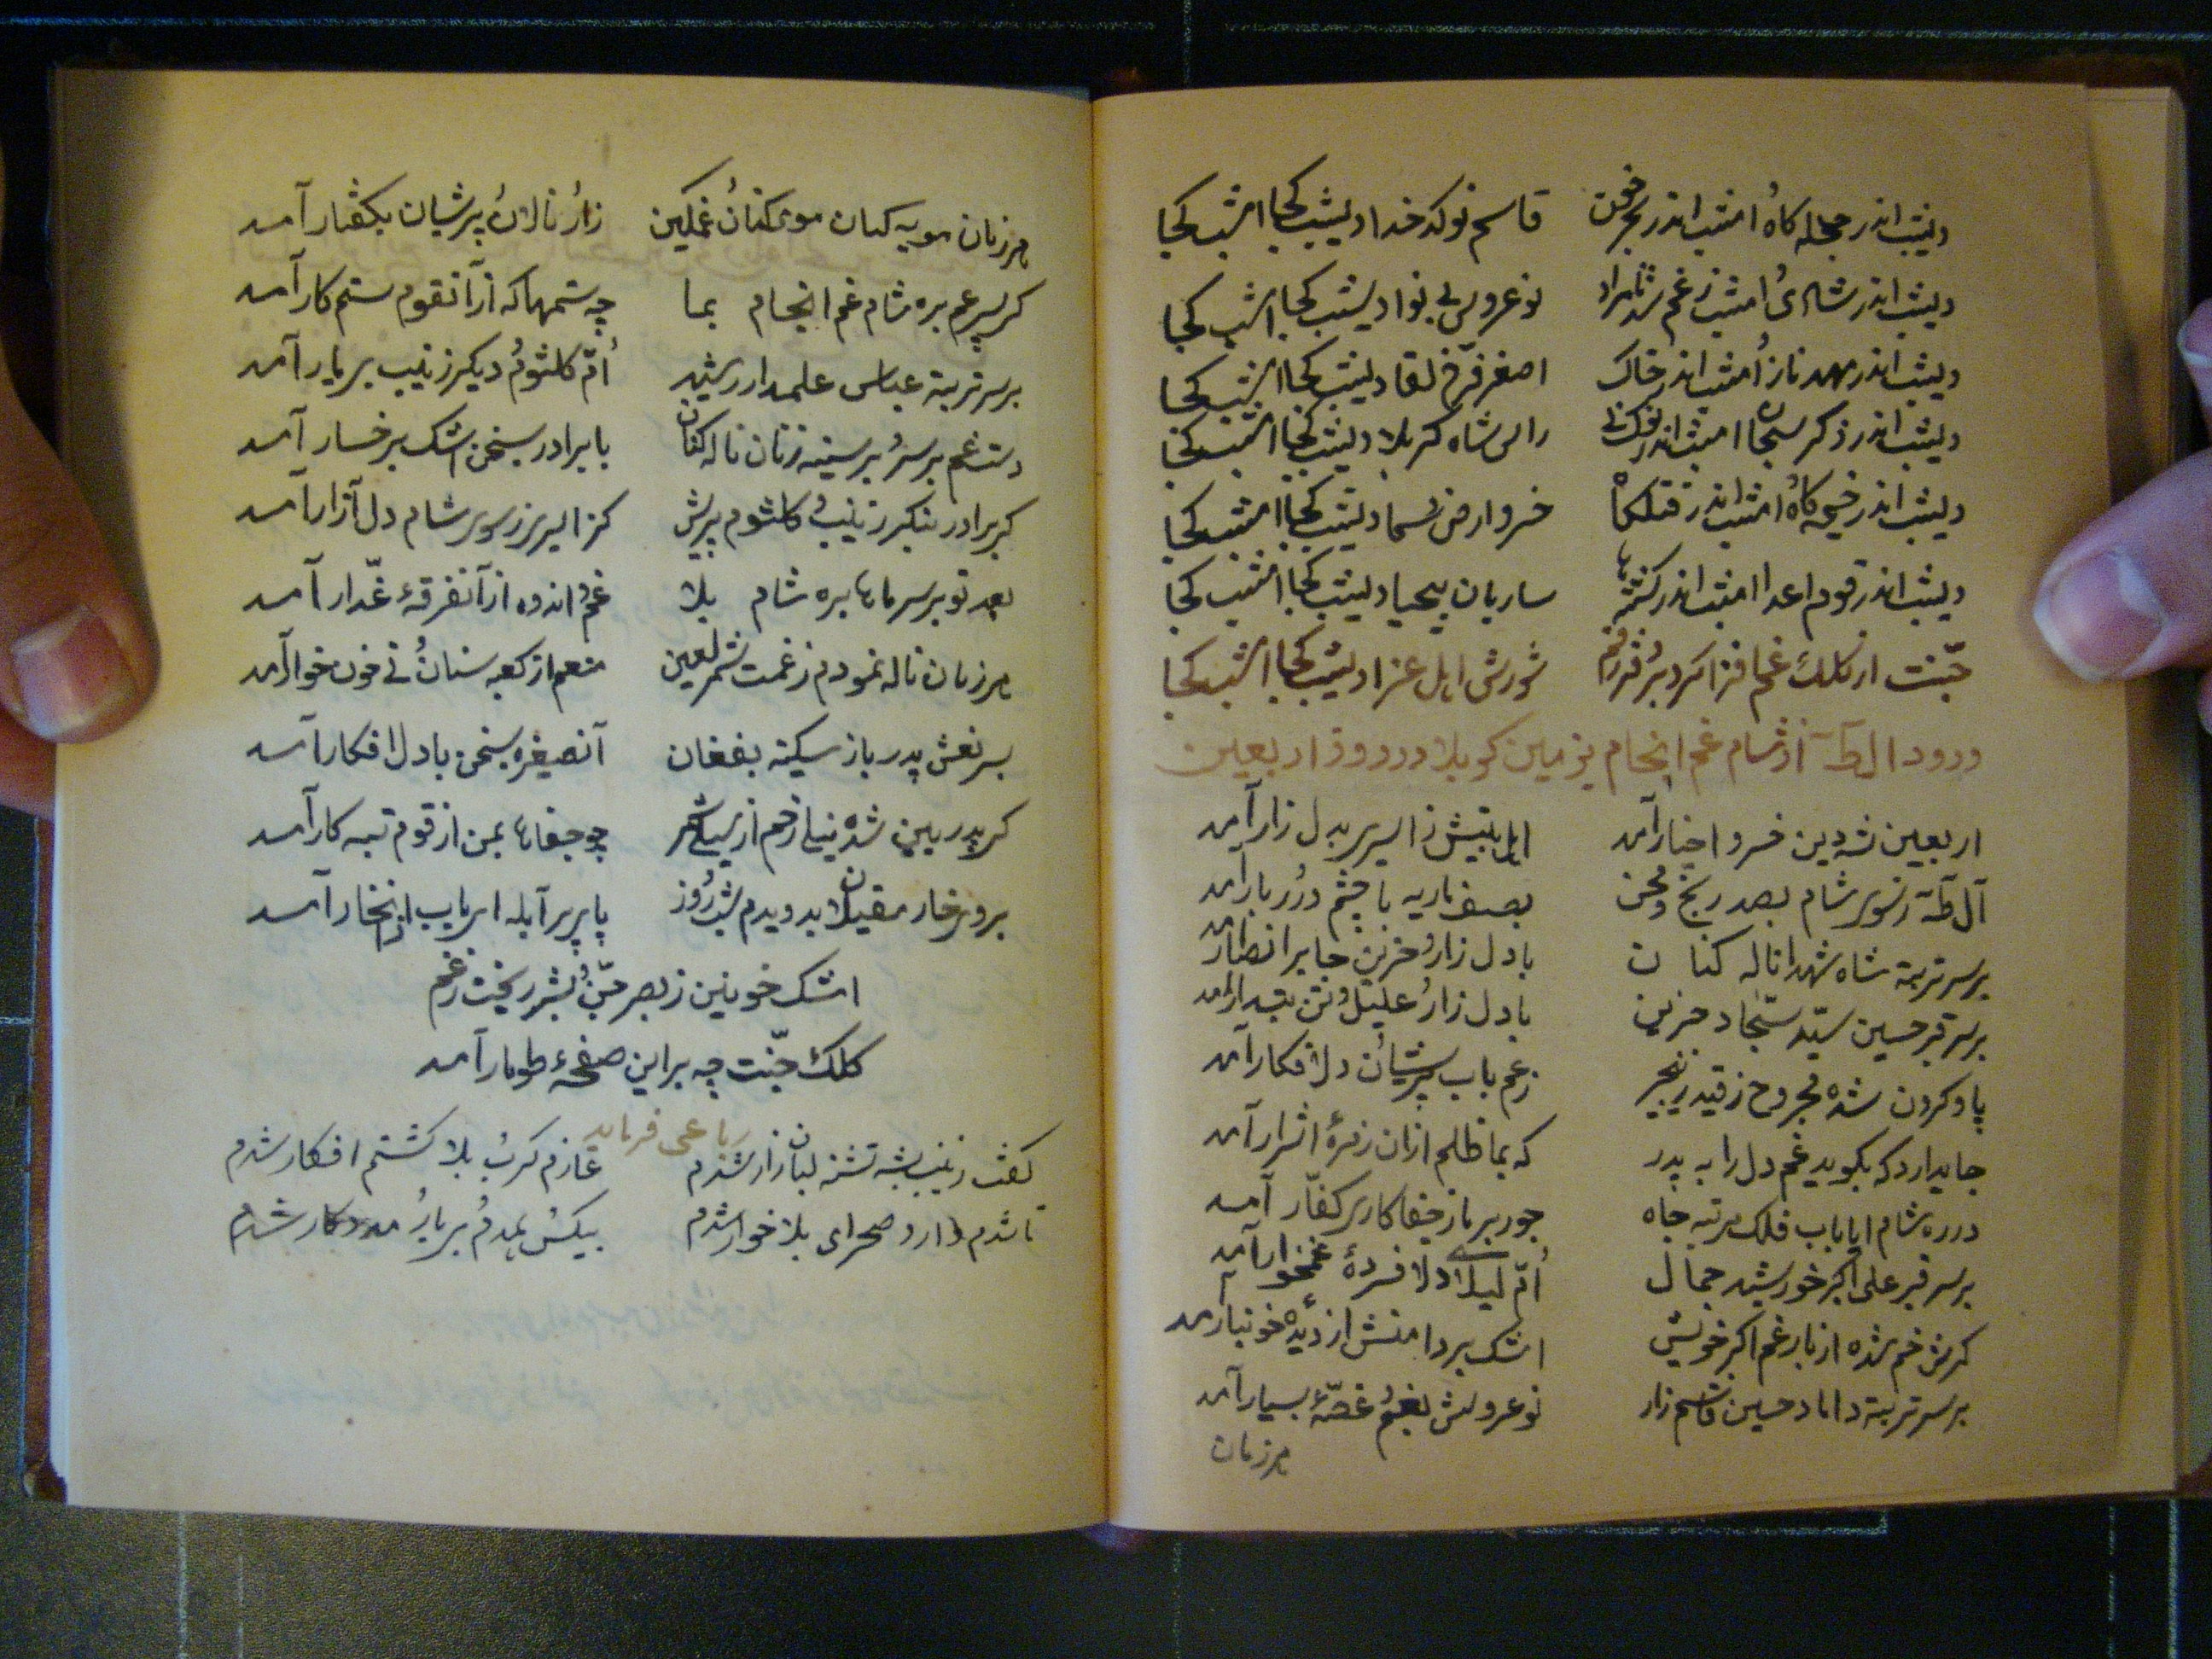 دیشب اندر حجله کاهُ امشب اندر بحر خون قاسم نوکدخدا دیشب کجا امشب کجا
دیشب اندر شادیُ امشب ز غم شد نامراد نوعروس بی نوا دیشب کجا امشب کجا
دیشب اندر مهد نازُ امشب اندر خاک اصغر فرّخ لقا دیشب کجا امشب کجا
دیشب اندر ذکر سبحان امشب اندر نوک نی راس شاه کربلا دیشب کجا امشب کجا
دیشب اندر خیمه کاهُ امشب اندر قتلکاه خسرو ارض و سما دیشب کجا امشب کجا
دیشب اندر قوم اعدا امشب اندر کشته ها ساربان بیحیا دیشب کجا امشب کجا
جنّت از کلک غم افزا کرد بر دفتر رقم شورش اهل عزا دیشب کجا امشب کجا
ورود ال طه از شام غم انجام بزمین کربلا در روز اربعین
اربعین شه دین خسرو اخیار آمد اهل بیتش ز اسیری بدل زار آمد
آل طه ز سوی شام بصد رنج و محن بصف ماریه با چشم دُرر بار آمد
برسر تربة شاه شهدا ناله کنان با دل زارُ حزین جابر انصار آمد
برسر قبر حسین سیّد سجّاد حزین با دل زارُ علیلُ تن تبدار آمد
پا و کردن شده مجروح ز قید زنجیر ز غم باب پریشانُ دل افکار آمد
جا بدارد که بکوید غم دل را به پدر که بما ظلم ازان زمرهٔ اشرار آمد
در ره شام ایا باب فلک مرتبه جاه جور بر ما ز جفا کاری کفّار آمد
برسر قبر علی اکبر خورشید جمال اُمّ لیلای دل افسردهٔ غمخوار آمد
کمرش خم شده از بار غم اکبر خویش اشک بر دامنش از دیدهٔ خونبار آمد
برسر تربة داماد حسین قاسم زار نوعروسش بغمُ غصّهٔ بسیار آمد
هر زمان
هر زمان مویه کنان موی کنانُ غمکین زارُ نالانُ پریشان بکفتار آمد
کی پسر عم بره شام غم انجام بما چه ستمها که از آنقوم ستم کار آمد
برسر تربة عباس علمدار رشید اُمّ کلثومُ دیکر زینب بی یار آمد
دست غم بر سرُ بر سینه زنان ناله کنان با برادر بسخن اشک برخسار آمد
کی برادر بنکر زینبُ کلثوم پریش کز اسیری ز سوی شام دل آزار آمد
بعد تو بر سر ماها بره شام بلا غمُ اندوه از آنفرقهٔ غدّار آمد
هر زمان ناله نمودم ز غمت شمر لعین منعم از کعب سنانُ نی خون خوار آمد
بسر نعش پدر باز سکینه بفغان آنصغیره بسخن با دل افکار آمد
کی پدر بین شده نیلی رخم از سیلی شمر چو جفاها بمن از قوم تبه کار آمد
بروی خار مغیلان بدویدم شبُ روز پا پر آبله ای باب از انخار آمد
اشک خونین ز بصر جنُّ بشر ریخت ز غم
کلک جنّت چه بر این صفحهٔ طومار آمد
رباعی فرماید
کفت زینب بشه تشنه لبان زار شدم عازم کربُ بلا کشتم افکار شدم
تا شدم وارد صحرای بلا خوار شدم بیکسُ همدمُ بی یارُ مددکار شدم